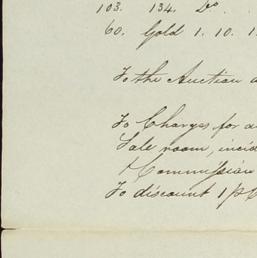 103. 134. Do
60. Gold 1. 10. 1
To the Auction a
To Charges for a
Sale room, incid
& Commission
To discount 1 p C